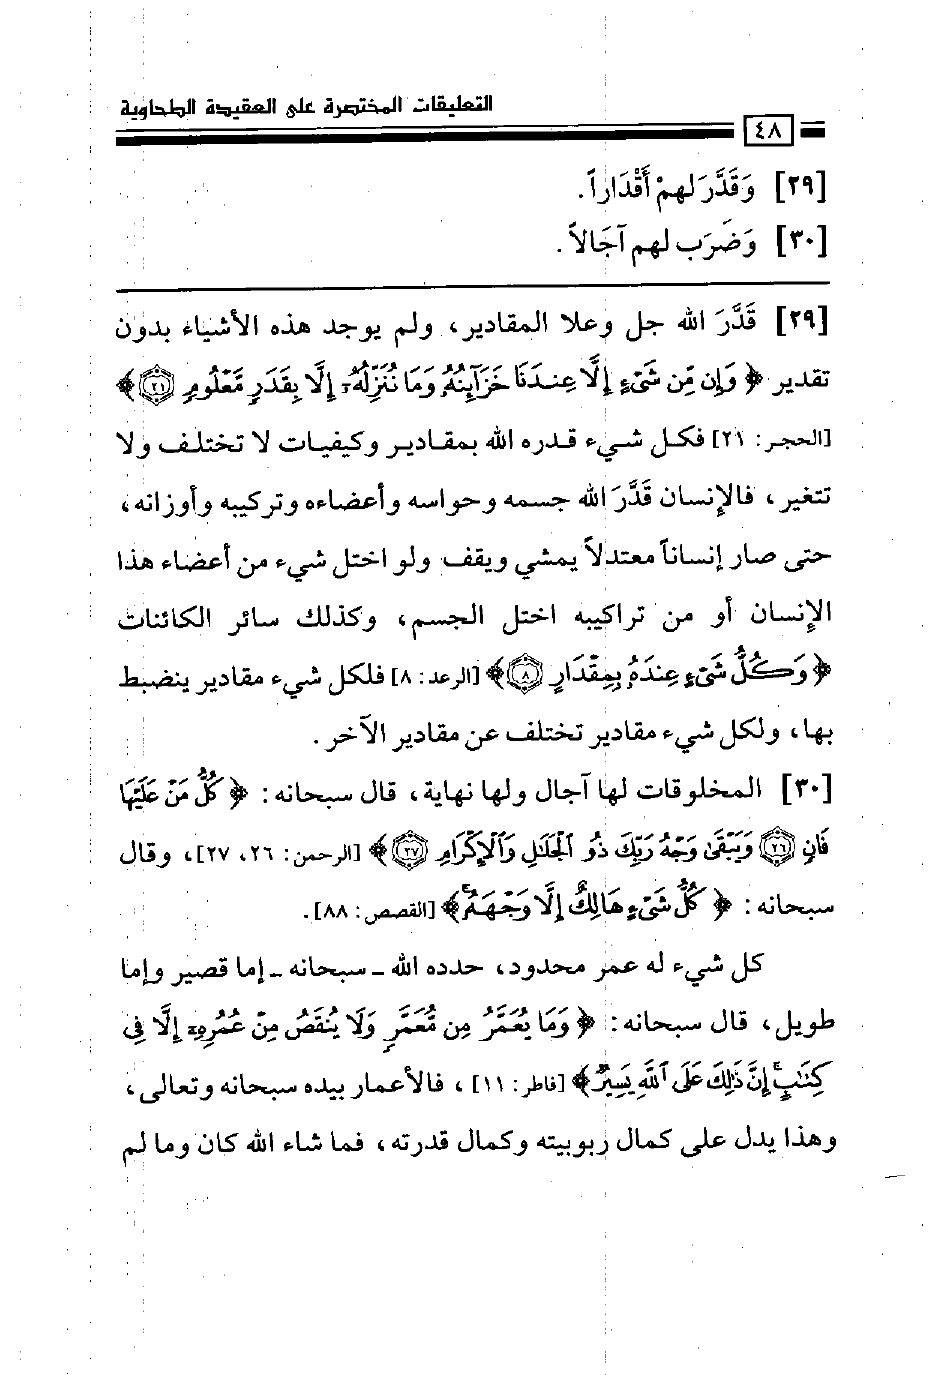 التعليقات المختصرة على العقيدة الطحاوية
٤٨
[٢٩] وَقَدَّرَ لهمْ أَقْدَاراً.
[٣٠] وَضَرَب لهم آجَالاً.
[٢٩] قَدَّرَ الله جل وعلا المقادير، ولم يوجد هذه الأشياء بدون
تقدير ﴿وَإِن مِّن شَىْءٍ إِلَّا عِندَنَا خَزَآئِنُهُۥ وَمَا نُنَزِّلُهُۥٓ إِلَّا بِقَدَرٍ مَّعْلُومٍ ٢١﴾
[الحجر: ٢١] فكل شيء قدره الله بمقادير وكيفيات لا تختلف ولا
تتغير، فالإنسان قَدَّرَ الله جسمه وحواسه وأعضاءه وتركيبه وأوزانه،
حتى صار إنساناً معتدلاً يمشي ويقف ولو اختل شيء من أعضاء هذا
الإنسان أو من تراكيبه اختل الجسم، وكذلك سائر الكائنات
﴿وَكُلُّ شَىْءٍ عِندَهُۥ بِمِقْدَارٍ ٨﴾ [الرعد: ٨] فلكل شيء مقادير ينضبط
بها، ولكل شيء مقادير تختلف عن مقادير الآخر.
[٣٠] المخلوقات لها آجال ولها نهاية، قال سبحانه: ﴿كُلُّ مَنْ عَلَيْهَا
فَانٍ ٢٦ وَيَبْقَىٰ وَجْهُ رَبِّكَ ذُو ٱلْجَلَٰلِ وَٱلْإِكْرَامِ ٢٧﴾ [الرحمن: ٢٦، ٢٧]، وقال
سبحانه: ﴿كُلُّ شَىْءٍ هَالِكٌ إِلَّا وَجْهَهُۥ﴾ [القصص: ٨٨].
كل شيء له عمر محدود، حدده الله ـ سبحانه ـ إما قصير وإما
طويل، قال سبحانه: ﴿وَمَا يُعَمَّرُ مِن مُّعَمَّرٍ وَلَا يُنقَصُ مِنْ عُمُرِهِۦٓ إِلَّا فِى
كِتَٰبٍ إِنَّ ذَٰلِكَ عَلَى ٱللَّهِ يَسِيرٌ﴾ [فاطر: ١١]، فالأعمار بيده سبحانه وتعالى،
وهذا يدل على كمال ربوبيته وكمال قدرته، فما شاء الله كان وما لم